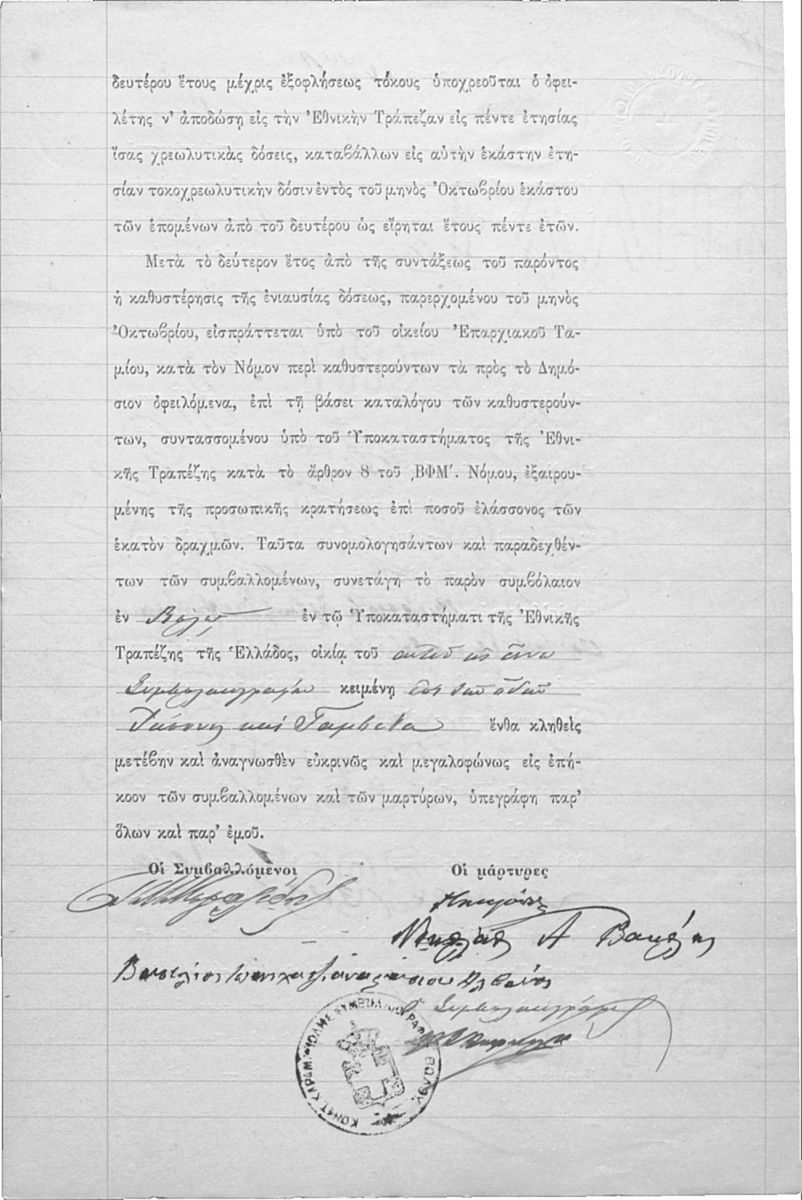 δευτέρου ἔτους μέχρις ἐξοφλήσεως τόκους ὑποχρεοῦται ὁ ὀφει-
λέτης ν' ἀποδώσῃ εἰς τὴν Ἐθνικὴν Τράπεζαν εἰς πέντε ἐτησίας
ἴσας χρεωλυτικὰς δόσεις, καταβάλλων εἰς αὐτὴν ἑκάστην ἐτη-
σίαν τοκοχρεωλυτικὴν δόσιν ἐντὸς τοῦ μηνὸς Ὀκτωβρίου ἑκάστου
τῶν ἑπομένων ἀπὸ τοῦ δευτέρου ὡς εἴρηται ἔτους πέντε ἐτῶν.
Μετὰ τὸ δεύτερον ἔτος ἀπὸ τῆς συντάξεως τοῦ παρόντος
ἡ καθυστέρησις τῆς ἐνιαυσίας δόσεως, παρερχομένου τοῦ μηνὸς
Ὀκτωβρίου, εἰσπράττεται ὑπὸ τοῦ οἰκείου Ἐπαρχιακοῦ Τα-
μίου, κατὰ τὸν Νόμον περὶ καθυστερούντων τὰ πρὸς τὸ Δημό-
σιον ὀφειλόμενα, ἐπὶ τῇ βάσει καταλόγου τῶν καθυστερούν-
των, συντασσομένου ὑπὸ τοῦ Ὑποκαταστήματος τῆς Ἐθνι-
κῆς Τραπέζης κατὰ τὸ ἄρθρον 8 τοῦ ͵ΒΦΜ′. Νόμου, ἐξαιρου-
μένης τῆς προσωπικῆς κρατήσεως ἐπὶ ποσοῦ ἐλάσσονος τῶν
ἑκατὸν δραχμῶν. Ταῦτα συνομολογησάντων καὶ παραδεχθέν-
των τῶν συμβαλλομένων, συνετάγη τὸ παρὸν συμβόλαιον
ἐν Βόλῳ ἐν τῷ Ὑποκαταστήματι τῆς Ἐθνικῆς
Τραπέζης τῆς Ἑλλάδος, οἰκίᾳ τοῦ
Συμβολαιογραφείου κειμένῃ ἐπὶ τῶν ὁδῶν
Ἰάσονος καὶ Γαμβέτα ἔνθα κληθεὶς
μετέβην καὶ ἀναγνωσθὲν εὐκρινῶς καὶ μεγαλοφώνως εἰς ἐπή-
κοον τῶν συμβαλλομένων καὶ τῶν μαρτύρων, ὑπεγράφη παρ'
ὅλων καὶ παρ' ἐμοῦ.
Οἱ Συμβαλλόμενοι Οἱ μάρτυρες
Νικόλαος Α
Βασίλειος
Ὁ Συμβολαιογράφος
ΚΩΝΣΤ. ΚΑΡΑΜ ΣΥΜΒΟΛΑΙΟΓΡΑΦΟΣ ΒΟΛΟΥ